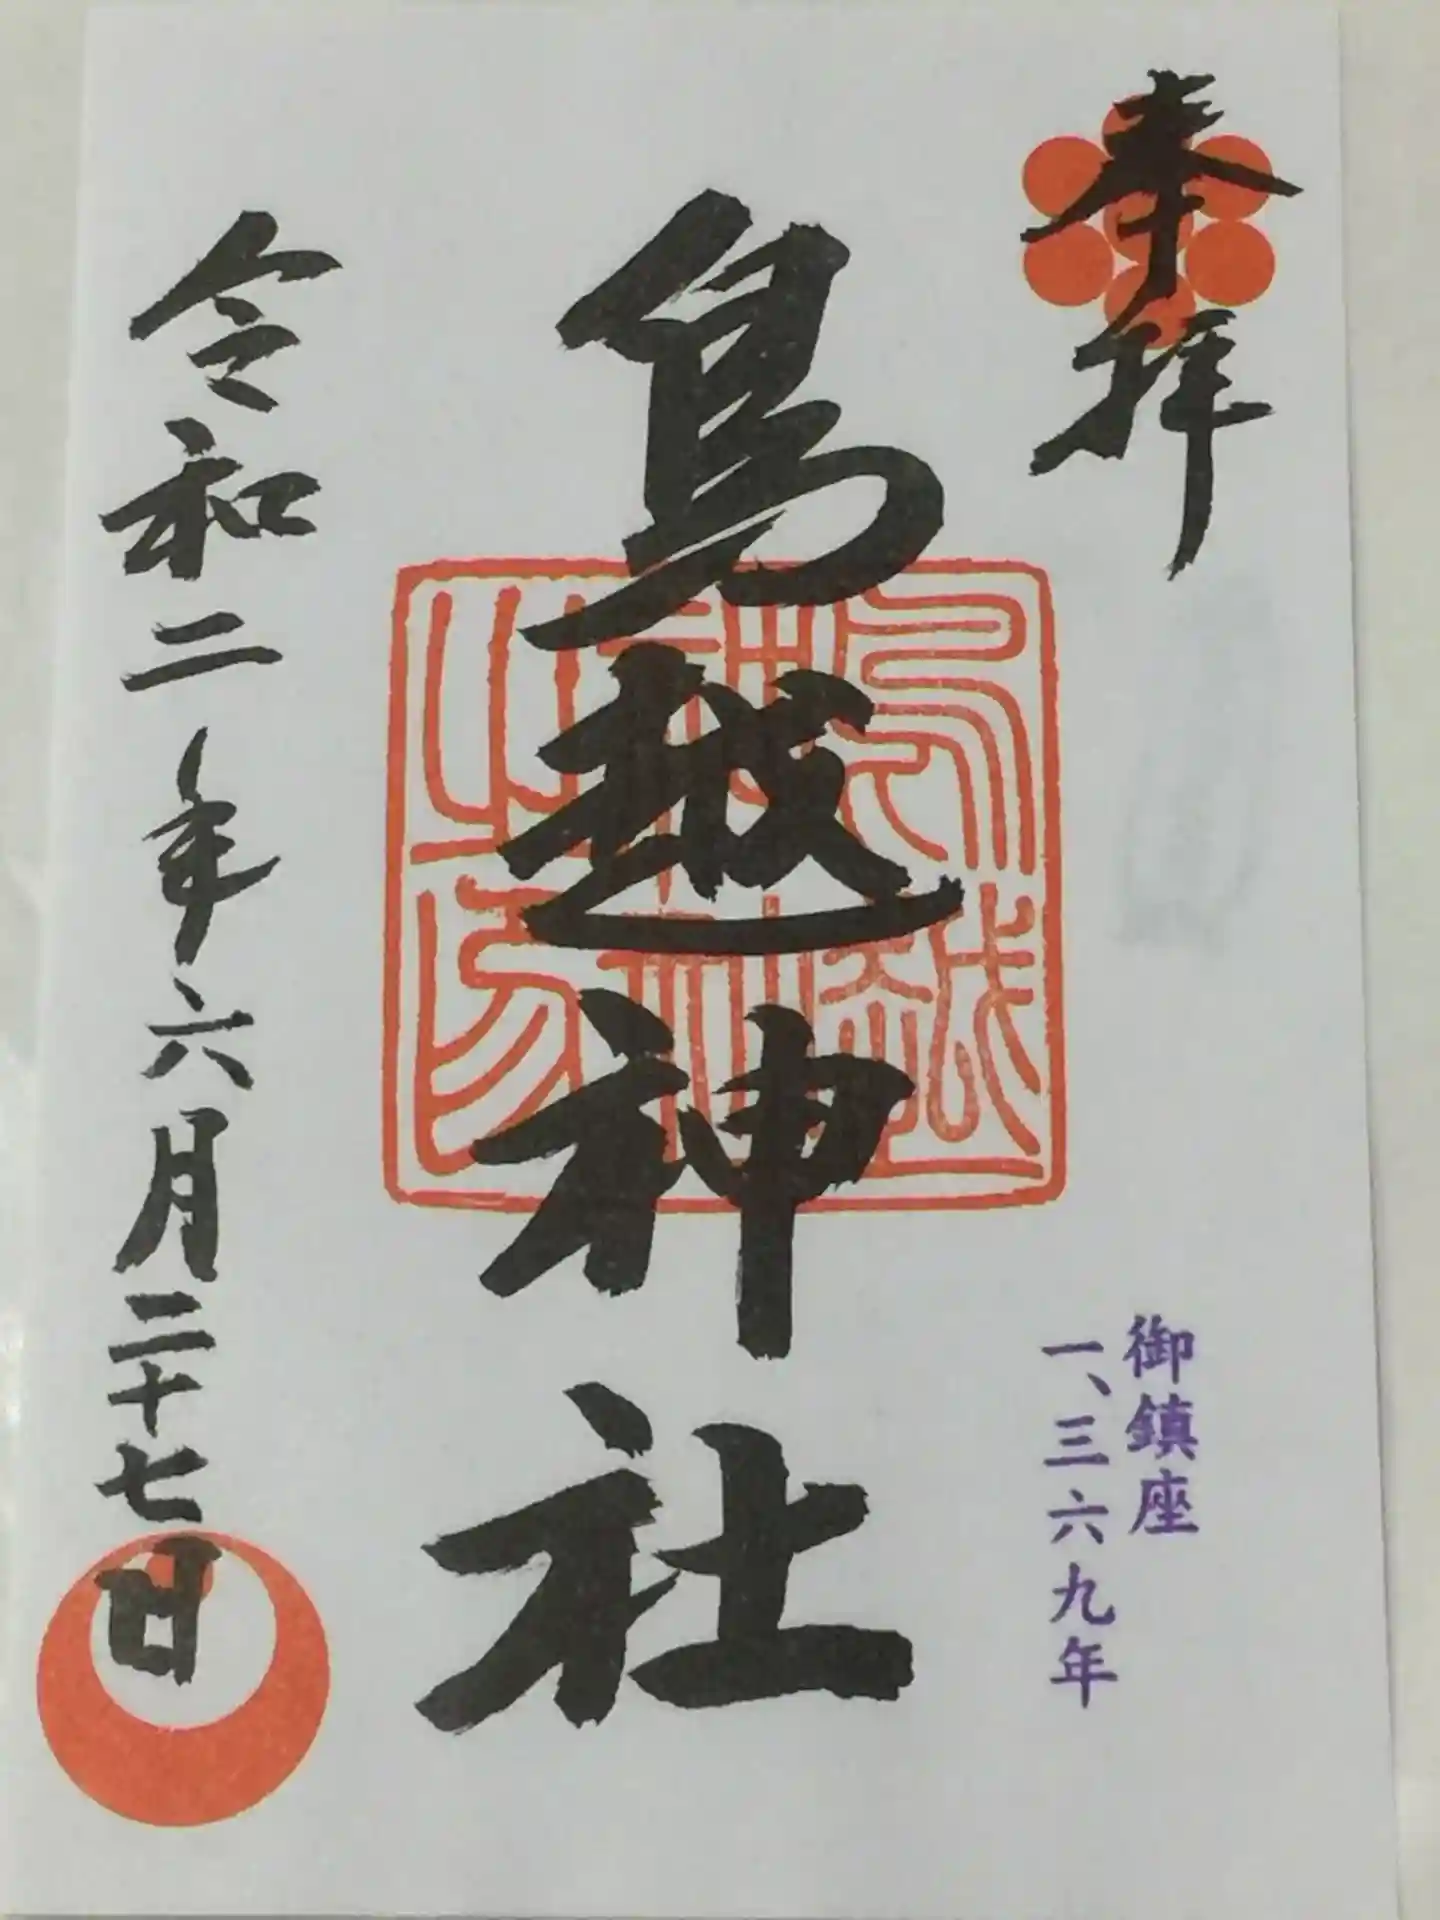 奉拝
御鎮座
一、三六九年
鳥越神社
鳥越神社之印
令和二年六月二十七日